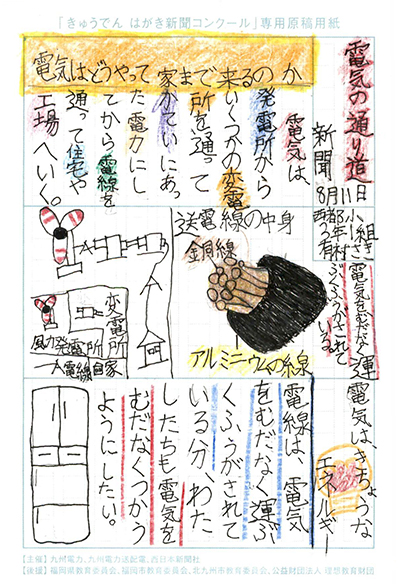 「きゅうでん はがき新聞コンクール」専用原稿用紙
電気の通り道
新聞
8月11日
西都小
電気はどうやって家まで来るのか
電気は、
発電所から
いくつかの変電
所を通って
家がていにあっ
た電力にし
てから電線を
通って住宅や
工場へいく。
電気をむだなく運
ぶくふうがされて
いる。
送電線の中身
鋼線
アルミニウムの線
変電所
風力発電所
電線
家
電気は、きちょうな
エネルギー
電線は、電気
をむだなく運ぶ
くふうがされて
いる分、わた
したちも電気を
むだなくつかう
ようにしたい。
【主催】九州電力、九州電力送配電、西日本新聞社
【後援】福岡県教育委員会、福岡市教育委員会、北九州市教育委員会、公益財団法人 理想教育財団